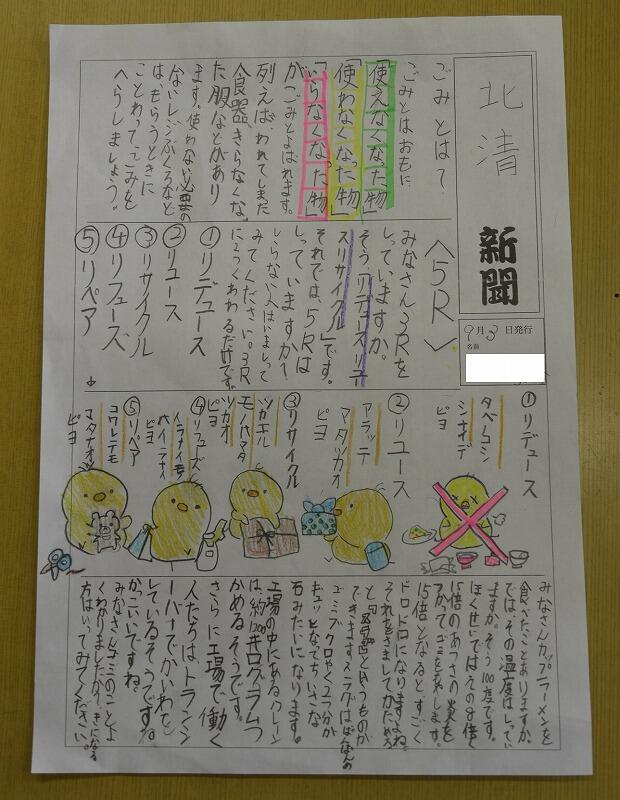 北清
新聞
9月3日発行
名前
ごみとは?
ごみとはおもに
「使えなくなった物」
「使わなくなった物」
「いらなくなった物」
がごみとよばれます。
列えば、われてしまた
食器、きらなくな
た服などがあり
ます。使わない必要の
ないレジぶくろなど
は、もらうときに
ことわってごみを
へらしましょう。
〈5R〉
みなさん3Rを
しっていますか。
そう「リデュースリユー
スリサイクル」です。
それでは、5Rは
しっていますか?
しらない人はいまし
みてください。3R
に2つくわわるだけです。
①リデュース
②リユース
③リサイクル
④リフューズ
⑤リペア
①リデュース
タベノコシ
シナイデ
ピヨ
②リユース
アラッテ
マタツカオ
ピヨ
③リサイクル
ツカオ
ピヨ
④リフューズ
イラナイモノ
ピヨ
⑤リペア
コワレテモ
マタナオソ
ピヨ
みなさんカップラーメンを
食べたことありますか。
では、その温度はしってい
ますか。そう100度です。
15倍のあつさの炎を
つかってゴミをもします。
15倍となるとすごく
ドロドロになりますよね。
それをさましてかためる
ゴミブクロやく2つ分が
キュッとなってちいさな
石みたいになります。
工場の中にあるクレーン
は、約1200キログラムつ
かめるそうです。
さらに工場で働く
人たちは、トランシ
ーバーでかいわを
しているそうです。
かっこいいですね。
みなさんゴミのことよ
くわかりましたか。きになる
方はいってみてください。